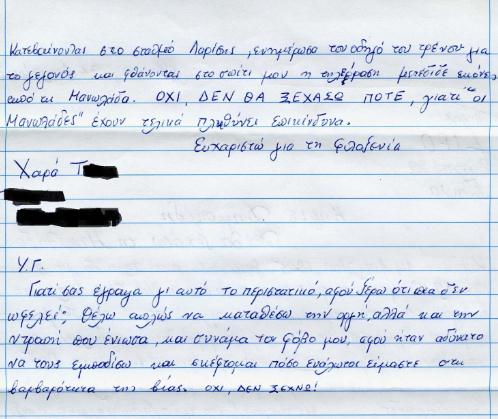 Κατεβαίνοντας στο σταθμό Λαρίσης, ενημέρωσα τον οδηγό του τρένου για
το γεγονός και φθάνοντας στο σπίτι μου η τηλεόραση μετέδιδε εικόνες
από τη Μανωλάδα. ΟΧΙ, ΔΕΝ ΘΑ ΞΕΧΑΣΩ ΠΟΤΕ, γιατί "οι
Μανωλάδες" έχουν τελικά πληθύνει επικίνδυνα.
Ευχαριστώ για τη φιλοξενία
Χαρά Τ
Υ.Γ.
Γιατί σας έγραψα γι αυτό το περιστατικό, αφού ξέρω ότι δεν
ωφελεί; Θέλω απλώς να καταθέσω την οργή, αλλά και την
ντροπή που ένιωσα, και συνάμα τον φόβο μου, αφού ήταν αδύνατο
να τους εμποδίσω και σκέφτομαι πόσο ευάλωτοι είμαστε στη
βαρβαρότητα της βίας. ΟΧΙ, ΔΕΝ ΞΕΧΝΩ!